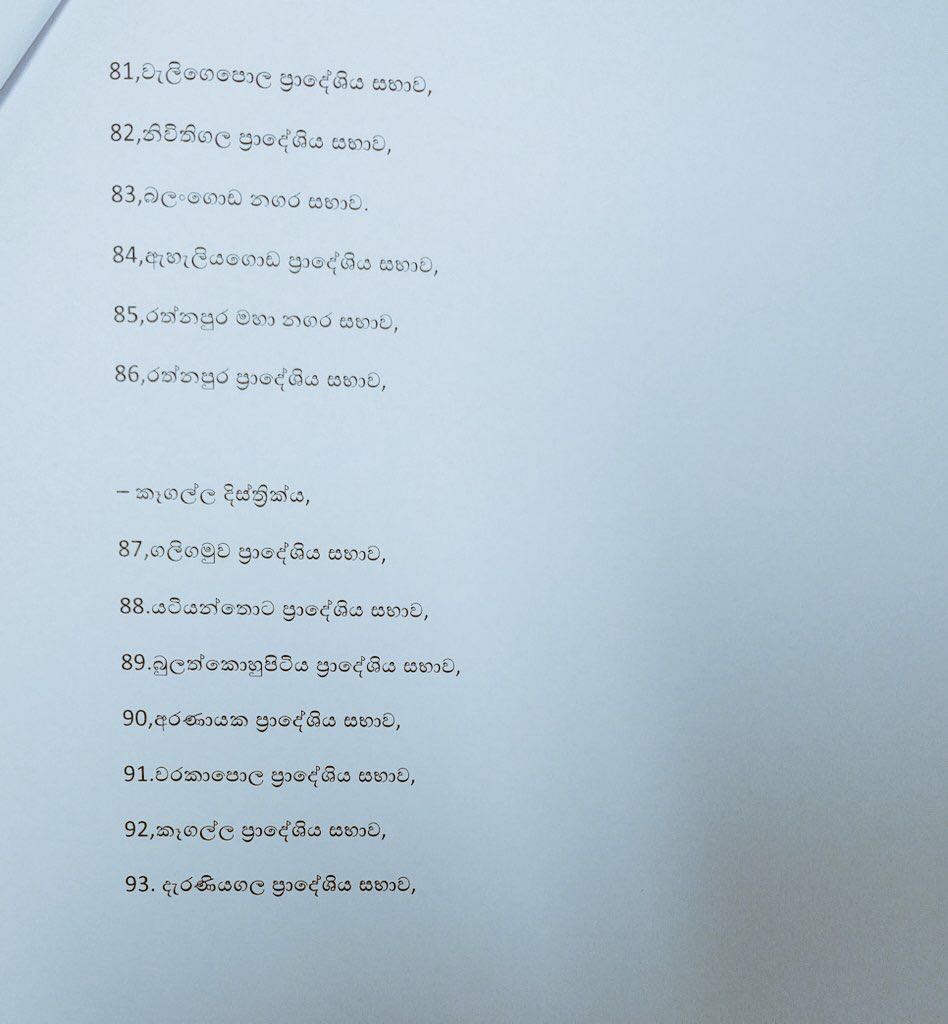 81,වැලිගෙපොල ප්‍රාදේශිය සභාව,
82,නිවිතිගල ප්‍රාදේශිය සභාව,
83,බලංගොඩ නගර සභාව.
84,ඇහැලියගොඩ ප්‍රාදේශිය සභාව,
85,රත්නපුර මහා නගර සභාව,
86,රත්නපුර ප්‍රාදේශිය සභාව,
– කෑගල්ල දිස්ත්‍රික්ය,
87,ගලිගමුව ප්‍රාදේශිය සභාව,
88.යටියන්තොට ප්‍රාදේශිය සභාව,
89.බුලත්කොහුපිටිය ප්‍රාදේශිය සභාව,
90,අරණායක ප්‍රාදේශිය සභාව,
91.වරකාපොල ප්‍රාදේශිය සභාව,
92,කෑගල්ල ප්‍රාදේශිය සභාව,
93. දැරණියගල ප්‍රාදේශිය සභාව,